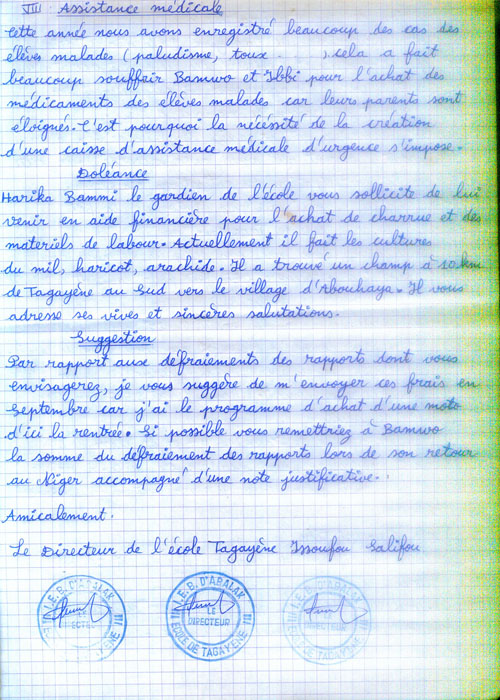 VIII Assistance médicale
Cette année nous avons enregistré beaucoup des cas des
élèves malades (paludisme, toux        ), cela a fait
beaucoup souffrir Bamwo et Ibbi pour l'achat des
médicaments des élèves malades car leurs parents sont
éloignés. C'est pourquoi la nécéssité de la création
d'une caisse d'assistance médicale d'urgence s'impose.
Doléance
Harika Bammi le gardien de l'école vous sollicite de lui
venir en aide financière pour l'achat de charrue et des
materiels de labour. Actuellement il fait les cultures
du mil, haricot, arachide. Il a trouvé un champ à 10 km
de Tagayène au Sud vers le village d'Abouhaya. Il vous
adresse ses vives et sincères salutations.
Suggestion
Par rapport aux défraiements des rapports dont vous
envisagerez, je vous suggère de m'envoyer ces frais en
Septembre car j'ai le programme d'achat d'une moto
d'ici la rentrée. Si possible vous remettriez à Bamwo
la somme du défraiement des rapports lors de son retour
au Niger accompagné d'une note justificative.
Amicalement.
Le Directeur de l'école Tagayène Issoufou Salifou
I.E.B. D'ABALAK
LE
DIRECTEUR
ECOLE DE TAGAYENE